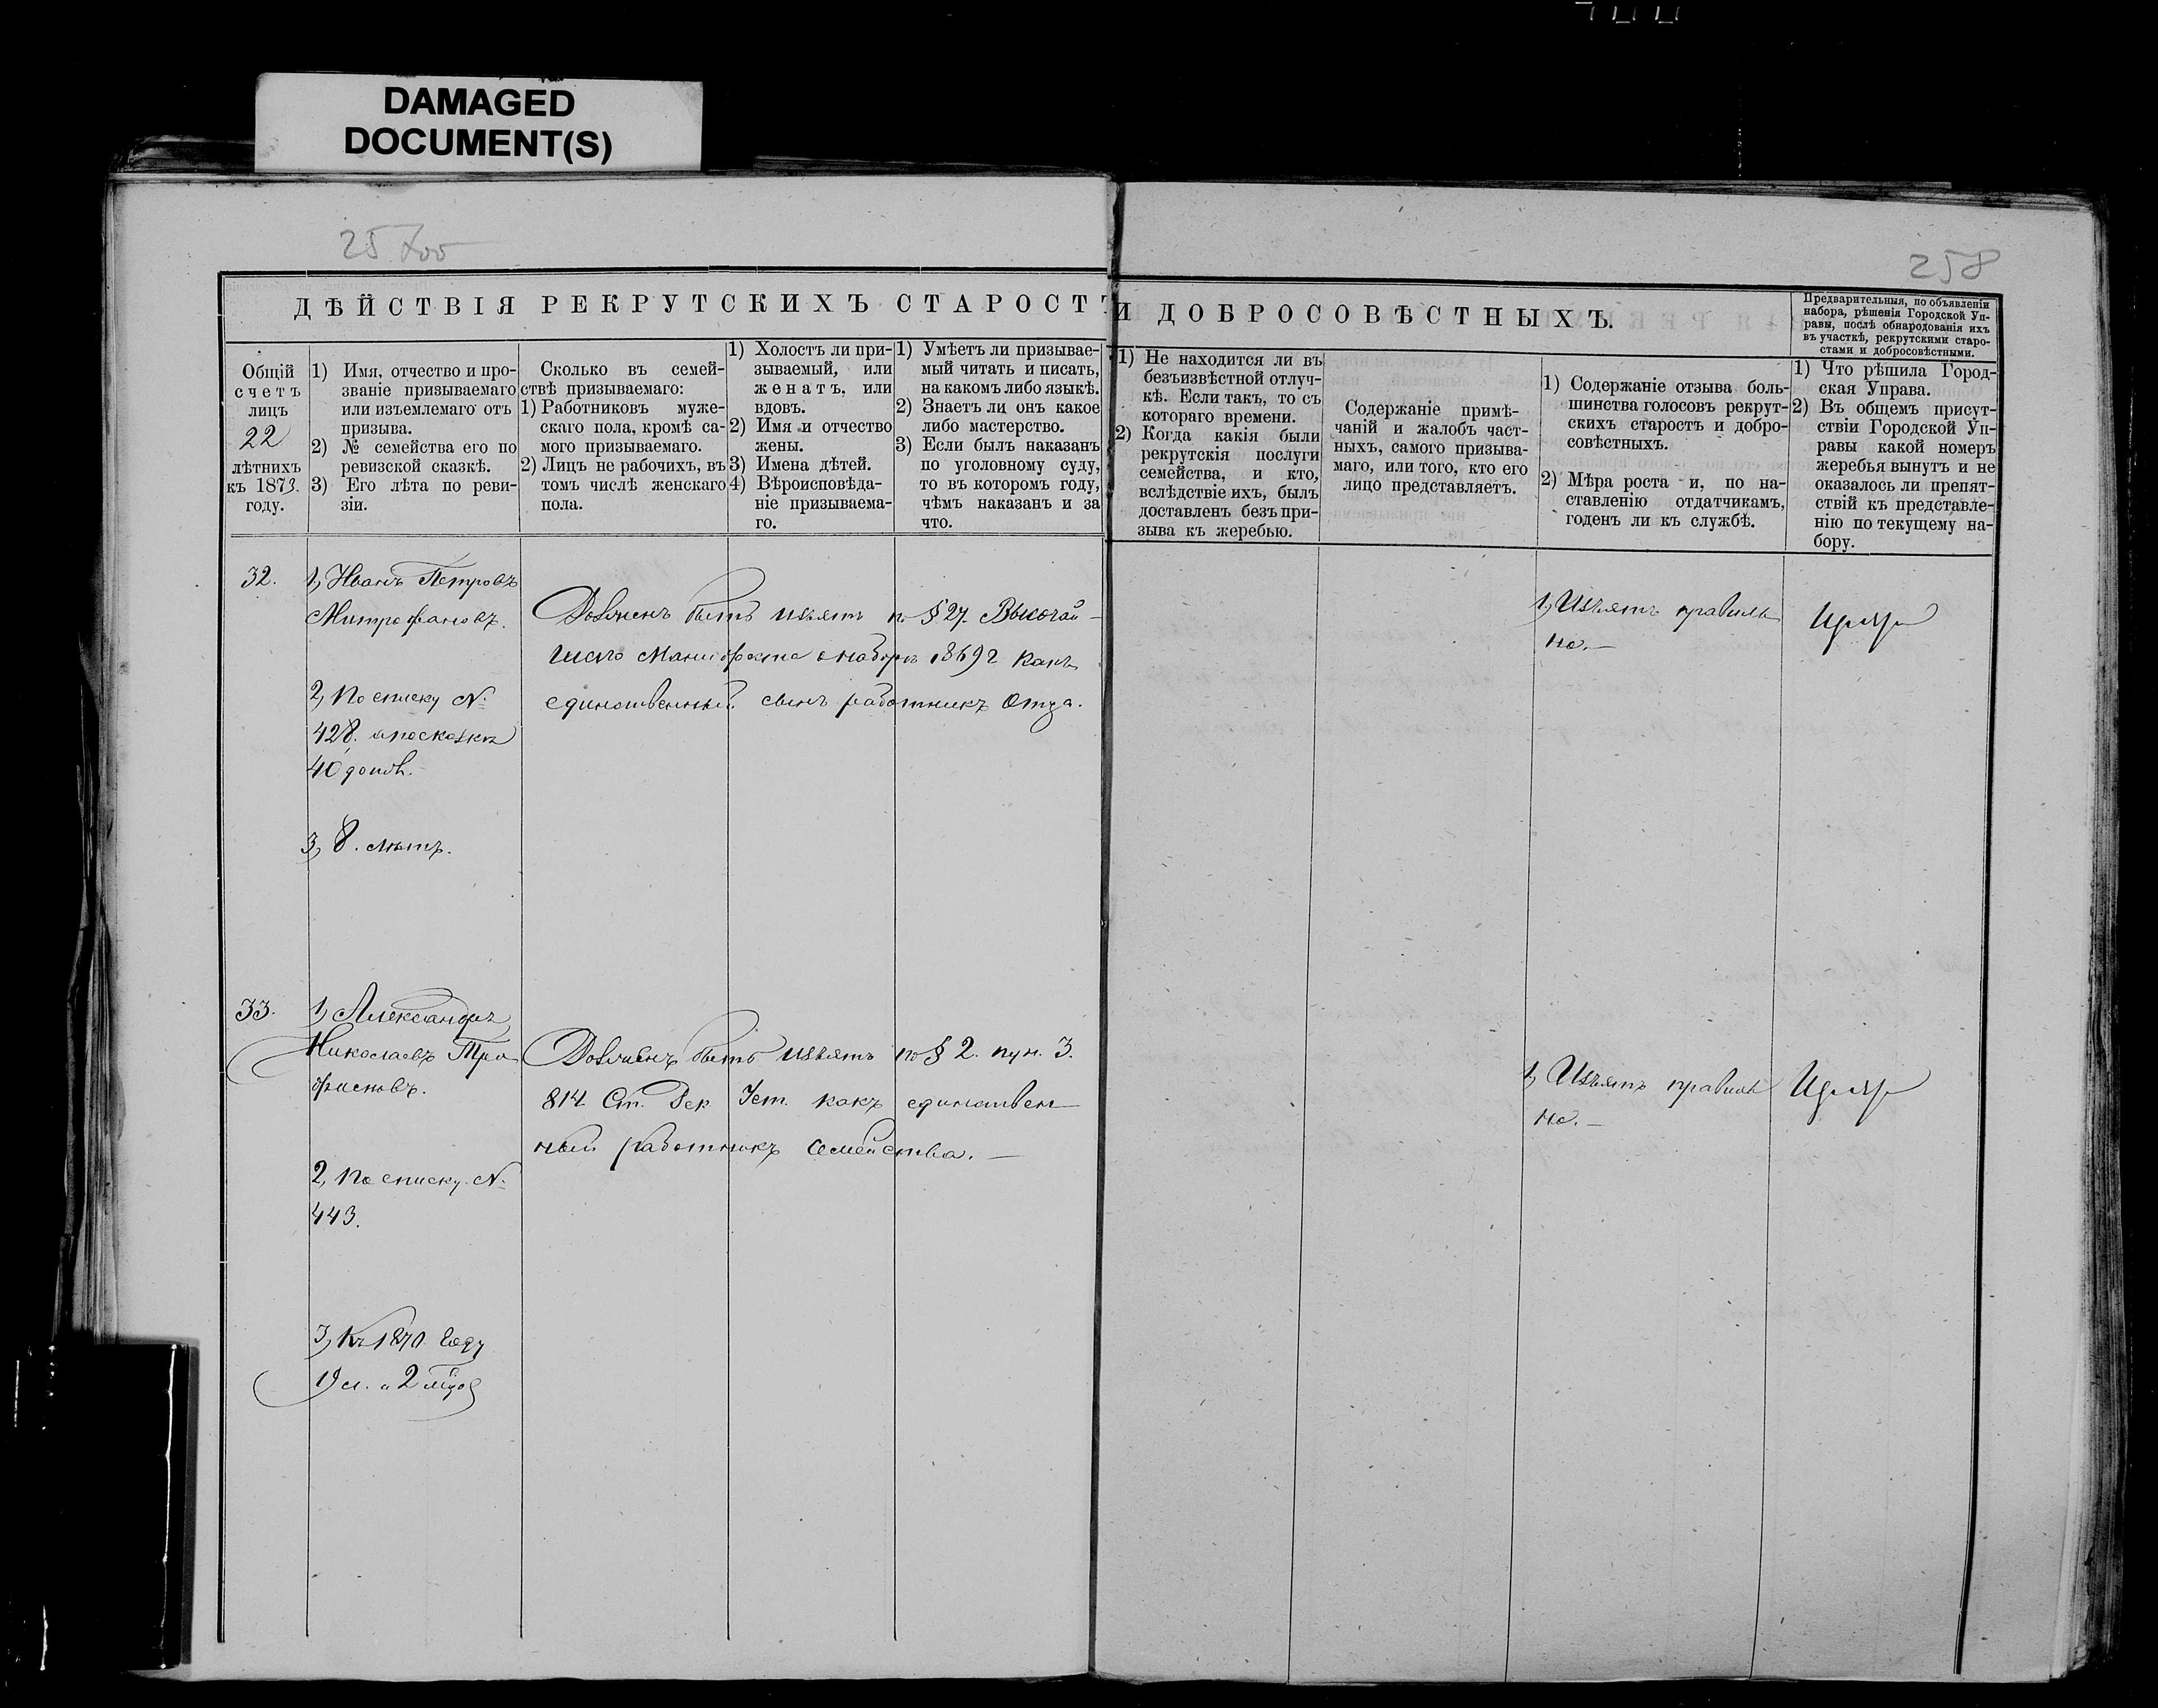 DAMAGED
DOCUMENT(S)
258
ДѢЙСТВІЯ РЕКРУТСКИХЪ СТАРОСТЪ И ДОБРОСОВѢСТНЫХЪ.
Предварительныя, по объявленіи
набора, рѣшенія Городской Уп-
равы, послѣ обнародованія ихъ
въ участкѣ, рекрутскими старо-
стами и добросовѣстными.
Общій
счетъ
лицъ
22
лѣтнихъ
къ 1873.
году.
1) Имя, отчество и про-
званіе призываемаго
или изъемлемаго отъ
призыва.
2) № семейства его по
ревизской сказкѣ.
3) Его лѣта по реви-
зіи.
Сколько въ семей-
ствѣ призываемаго:
1) Работниковъ муже-
скаго пола, кромѣ са-
мого призываемаго.
2) Лицъ не рабочихъ, въ
томъ числѣ женскаго
пола.
1) Холостъ ли при-
зываемый, или
женатъ, или
вдовъ.
2) Имя и отчество
жены.
3) Имена дѣтей.
4) Вѣроисповѣда-
ніе призываема-
го.
1) Умѣетъ ли призывае-
мый читать и писать,
на какомъ либо языкѣ.
2) Знаетъ ли онъ какое
либо мастерство.
3) Если былъ наказанъ
по уголовному суду,
то въ которомъ году,
чѣмъ наказанъ и за
что.
1) Не находится ли въ
безъизвѣстной отлуч-
кѣ. Если такъ, то съ
котораго времени.
2) Когда какія были
рекрутскія послуги
семейства, и кто,
вслѣдствіе ихъ, былъ
доставленъ безъ при-
зыва къ жеребью.
Содержаніе примѣ-
чаній и жалобъ част-
ныхъ, самого призыва-
маго, или того, кто его
лицо представляетъ.
1) Содержаніе отзыва боль-
шинства голосовъ рекрут-
скихъ старостъ и добро-
совѣстныхъ.
2) Мѣра роста и, по на-
ставленію отдатчикамъ,
годенъ ли къ службѣ.
1) Что рѣшила Город-
ская Управа.
2) Въ общемъ присут-
ствіи Городской Уп-
равы какой номеръ
жеребья вынутъ и не
оказалось ли препят-
ствій къ представле-
нію по текущему на-
бору.
32.
1, Иванъ Петровъ
Митрофановъ.
2, По списку №
428. и по сказкѣ
40 допол.
3, 8. лѣтъ.
Долженъ быть изъятъ п. § 27. Высочай-
шаго Манифеста о наборѣ 1869 г какъ
единственный сынъ работникъ отца.
1, Изъятъ правиль
но.—
33.
1, Александръ
Николаевъ Тро
фимовъ.
2, По списку. №
443.
3, Къ 1870. году
19 л. и 2 мѣс
Долженъ быть изъятъ по § 2. пун. 3.
814 Ст. Рек Уст. какъ единствен
ный работникъ семейства.—
1, Изъятъ правиль
но.—